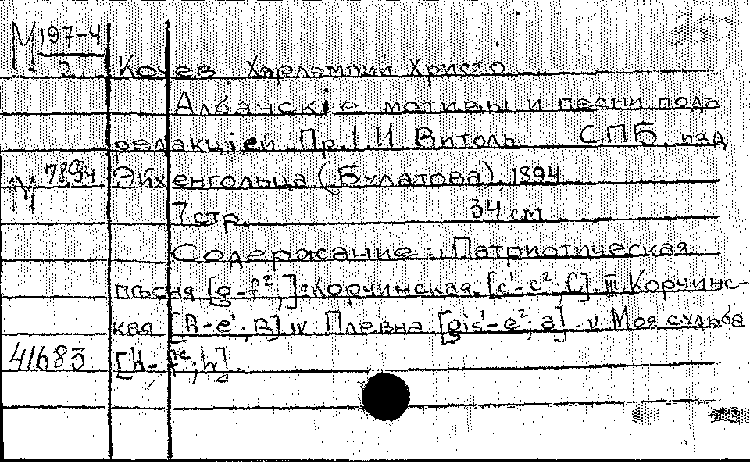 М 197-4
2 Кочев Харлампии Христо
Албанскiе мотивы и песни подъ
редакцiей Пр. I. И Витоль СПБ. изд
М 7894 Эйхенгольца (Булатова). 1894
7 стр. 34 cm
Содержание: Патриотическая
пѣсня [g-f², ]: Корчинская. [c'-c² C]. III Корчинс-
кая [A-e'; a] IV Плевна [gis'-e², a] V Моя судьба
41683